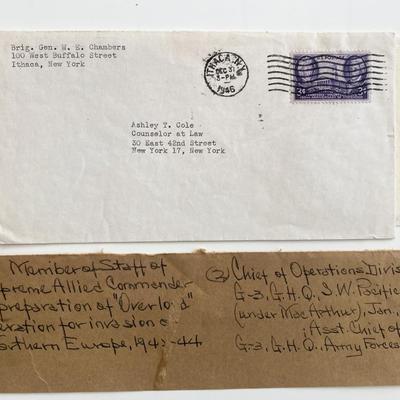 Brig. Gen. W. E. Chambers
100 West Buffalo Street
Ithaca, New York
ITHACA, N.Y.
DEC 31
3-PM
1946
3¢
3¢
Ashley T. Cole
Counselor at Law
30 East 42nd Street
New York 17, New York
Member of Staff of
preme Allied Commander
preparation of "Overlord"
eration for invasion o
orthern Europe, 1943-44
② Chief of Operations Divis
G-3, G.H.Q., S.W. Pacific
(under MacArthur), Jan.,
Asst. Chief of
G-3, G.H.Q., Army Forces